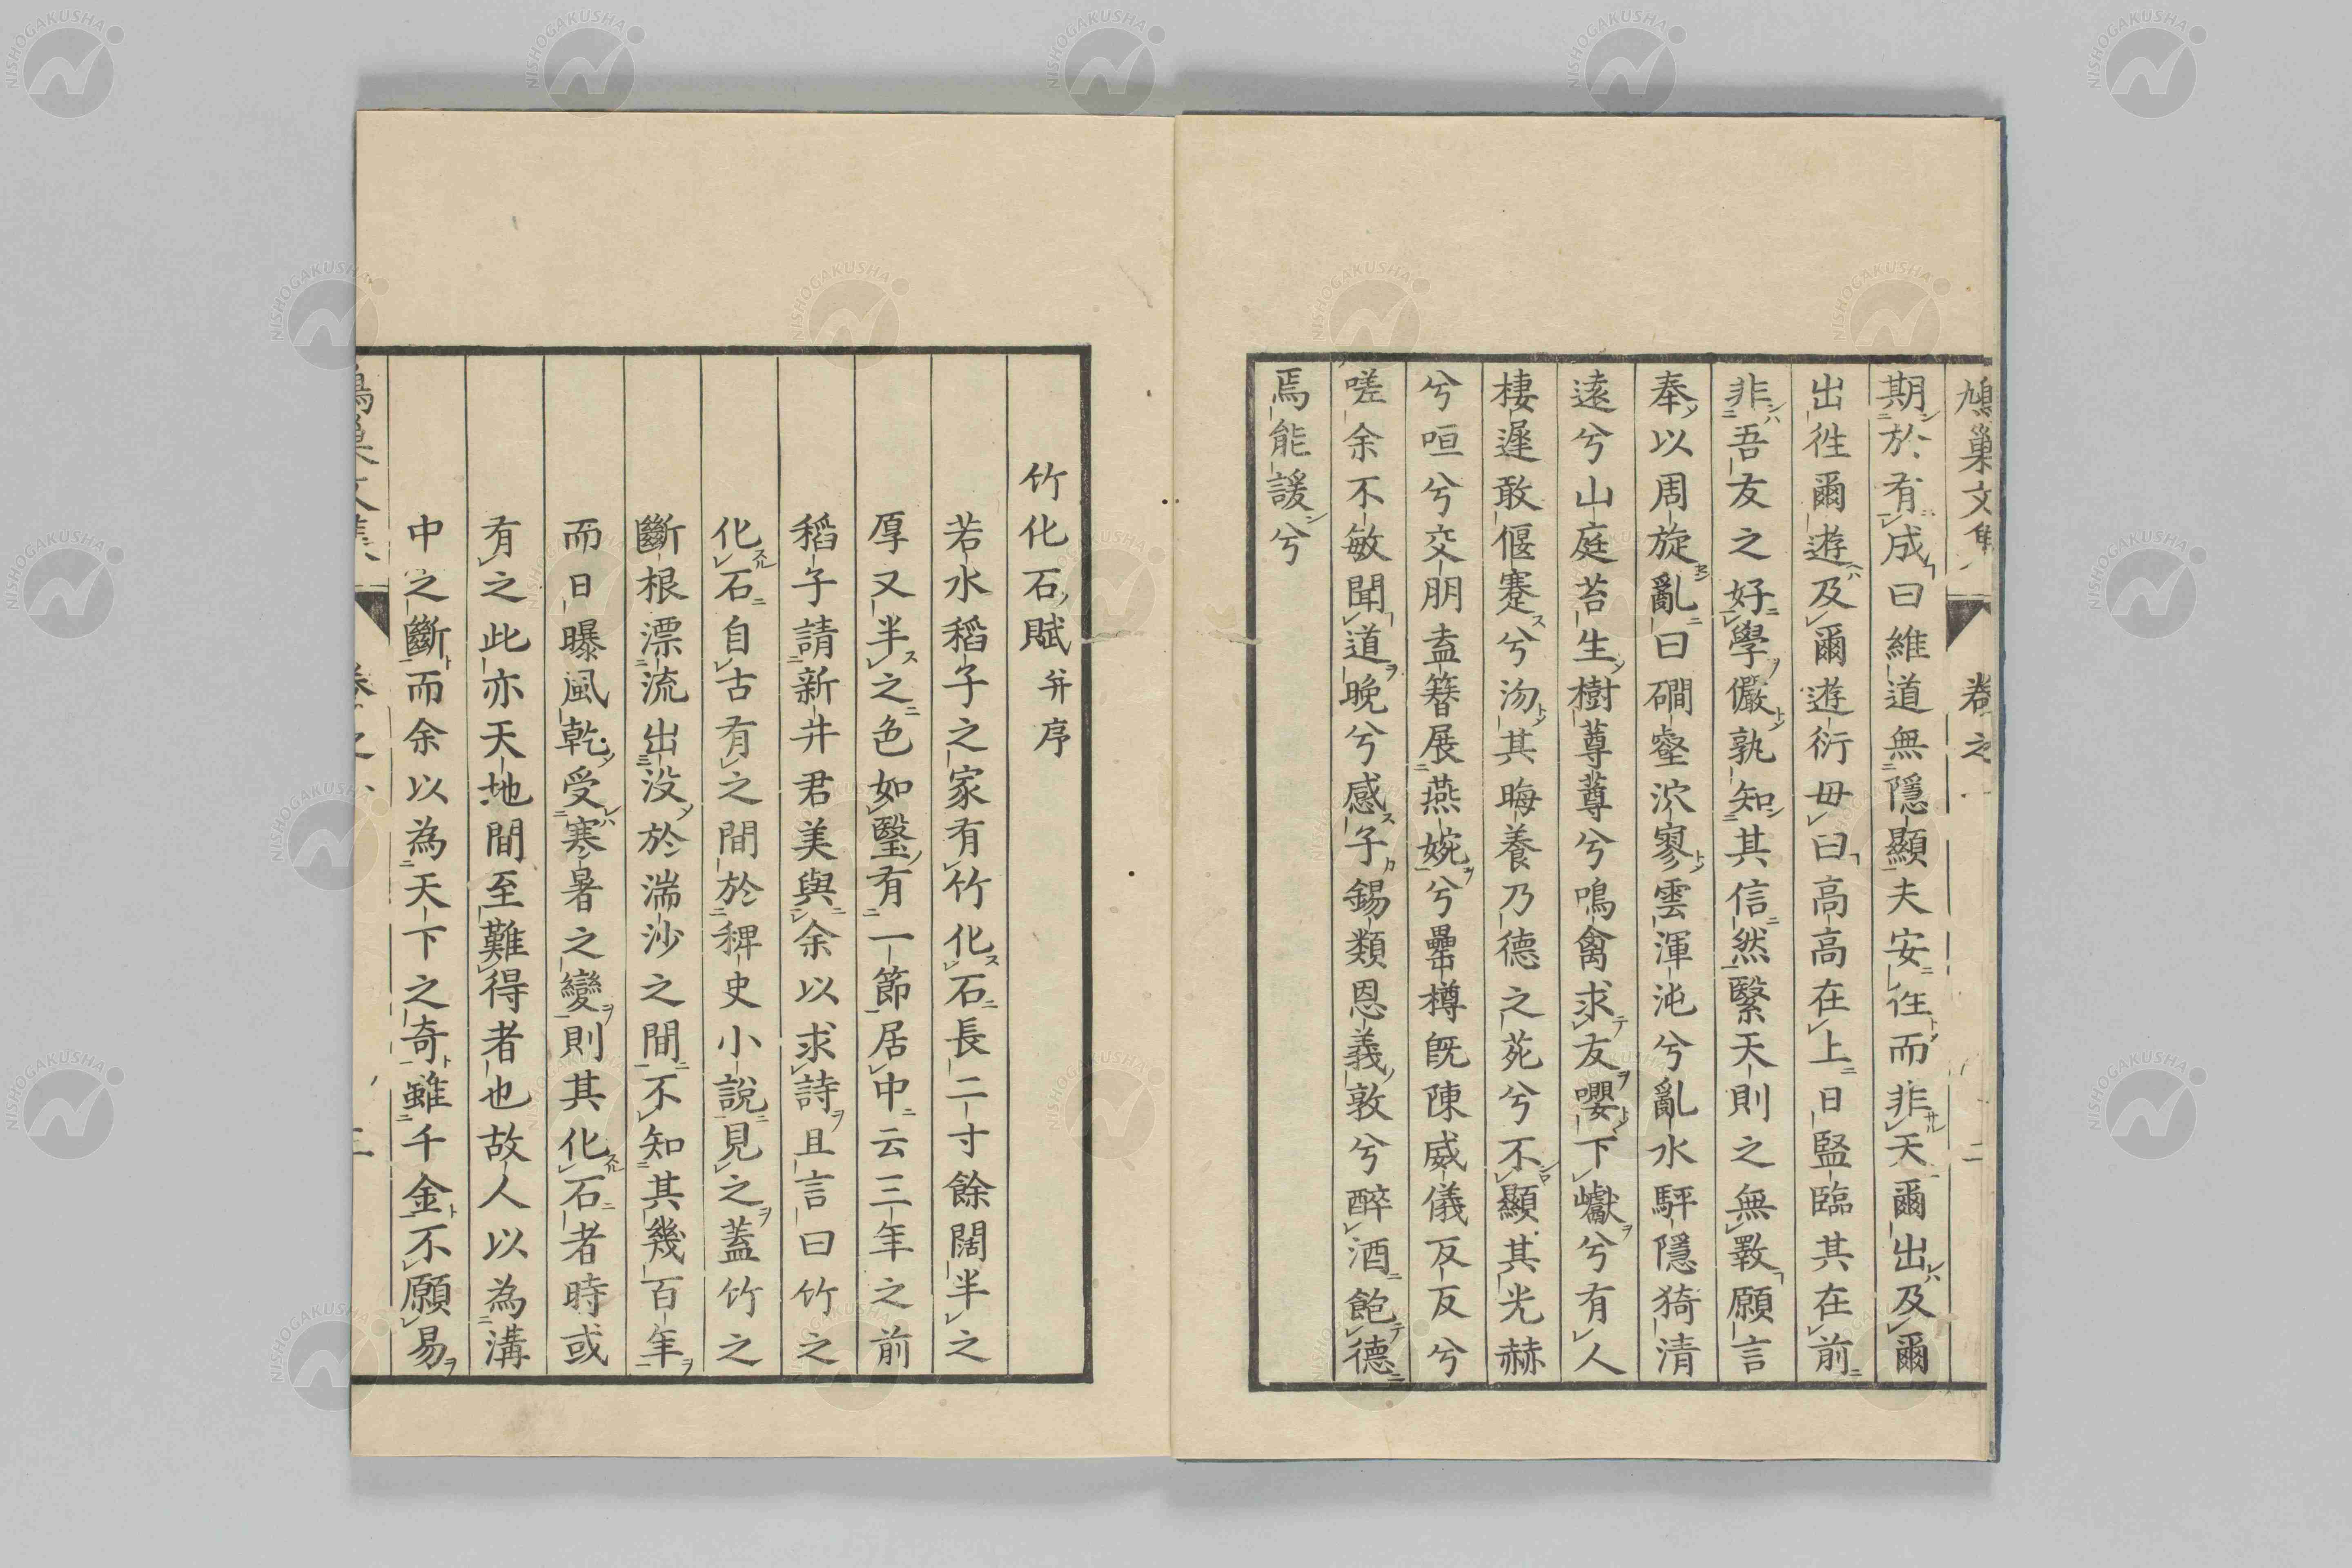 鳩巢文集 卷之 二
期於有成曰維道無隱顯夫安往而非天爾出及爾
出往爾遊及爾遊衍毋曰高高在上日監臨其在前
非吾友之好學儼孰知其信然繄天則之無斁願言
奉以周旋亂曰磵壑泬寥雲渾沌兮亂水駍隱猗清
遠兮山庭苔生樹蓴蓴兮鳴禽求友嚶下巘兮有人
棲遲敢偃蹇兮沕其晦養乃德之苑兮不顯其光赫
兮咺兮交朋盍簪展燕婉兮罍樽既陳威儀反反兮
嗟余不敏聞道晚兮感子錫類恩義敦兮醉酒飽德
焉能諼兮
竹化石賦 并序
若水稻子之家有竹化石長二寸餘闊半之
厚又半之色如瑿有一節居中云三年之前
稻子請新井君美與余以求詩且言曰竹之
化石自古有之間於稗史小說見之蓋竹之
斷根漂流出没於湍沙之間不知其幾百年
而日曝風乾受寒暑之變則其化石者時或
有之此亦天地間至難得者也故人以為溝
中之斷而余以為天下之奇雖千金不願易